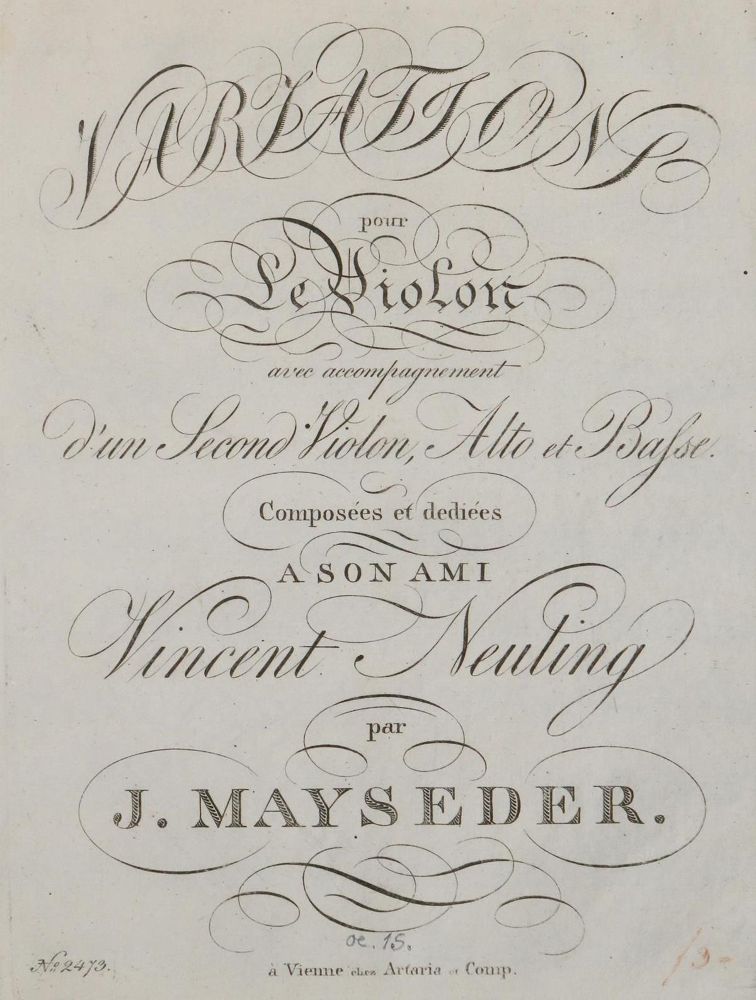 VARIATIONS
pour
Le Violon
avec accompagnement
d'un Second Violon, Alto et Basse.
Composées et dediées
A SON AMI
Vincent Neuling
par
J. MAYSEDER.
oe. 15.
No 2473.
à Vienne chez Artaria et Comp.